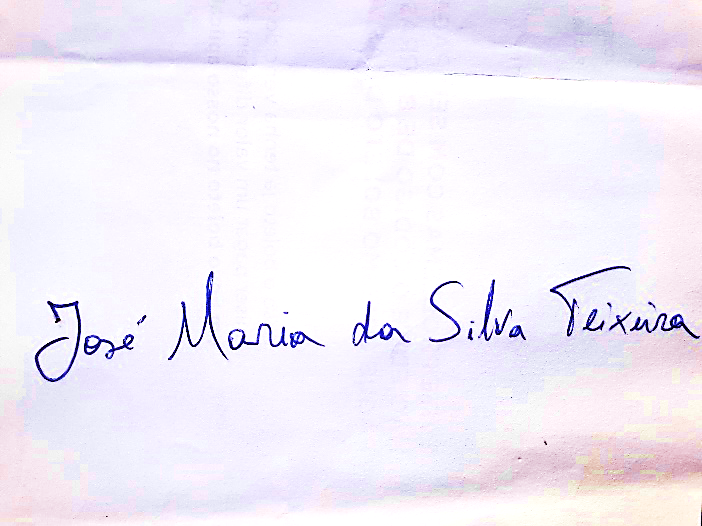 José Maria da Silva Teixeira